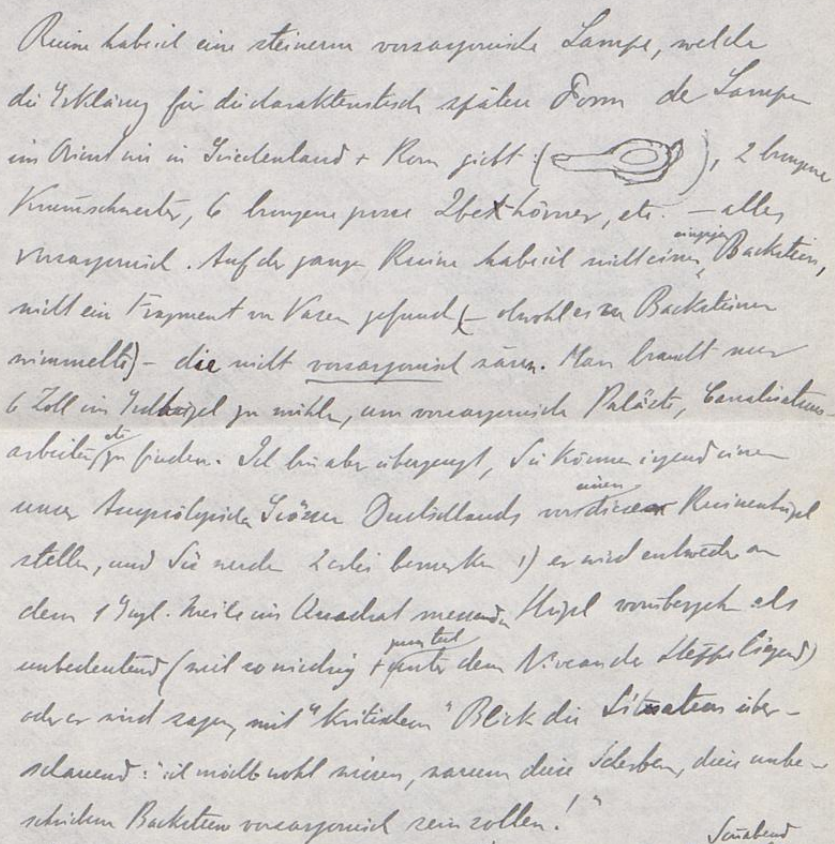 Ruine habe ich eine steinerne vorsargonische Lampe, welche
die Erklärung für die charakteristisch späten Form der Lampen
im Orient wie in Griechenland + Rom giebt (), 2 bronzene
Krummschwerter, 6 bronzene grosse Ibexhörner, etc. — alles
vorsargonisch. Auf der ganzen Ruine habe ich nicht einen einzigen Backstein,
nicht ein Fragment von Vasen gefunden (— obwohl es von Backsteinen
wimmelte) — die nicht vorsargonisch wären. Man braucht nur
6 Zoll im Erdhügel zu wühlen, um vorsargonische Paläste, Canalisations-
arbeiten etc zu finden. Ich bin aber überzeugt, Sie können irgend einen
unser Assyriologischen Grössen Deutschlands vor einen Ruinenhügel
stellen, und Sie werden 2erlei bemerken 1) er wird entweder an
dem 1 Engl. Meile im Quadrat messenden Hügel vorübergehn als
unbedeutend (weil so niedrig + zum teil unter dem Niveau der Steppe liegend)
oder er wird sagen, mit "kritischem" Blick die Situation über-
schauend: "ich möchte wohl wissen, warum diese Scherben, diese unbe-
schriebenen Backsteine vorsargonisch sein sollen!"